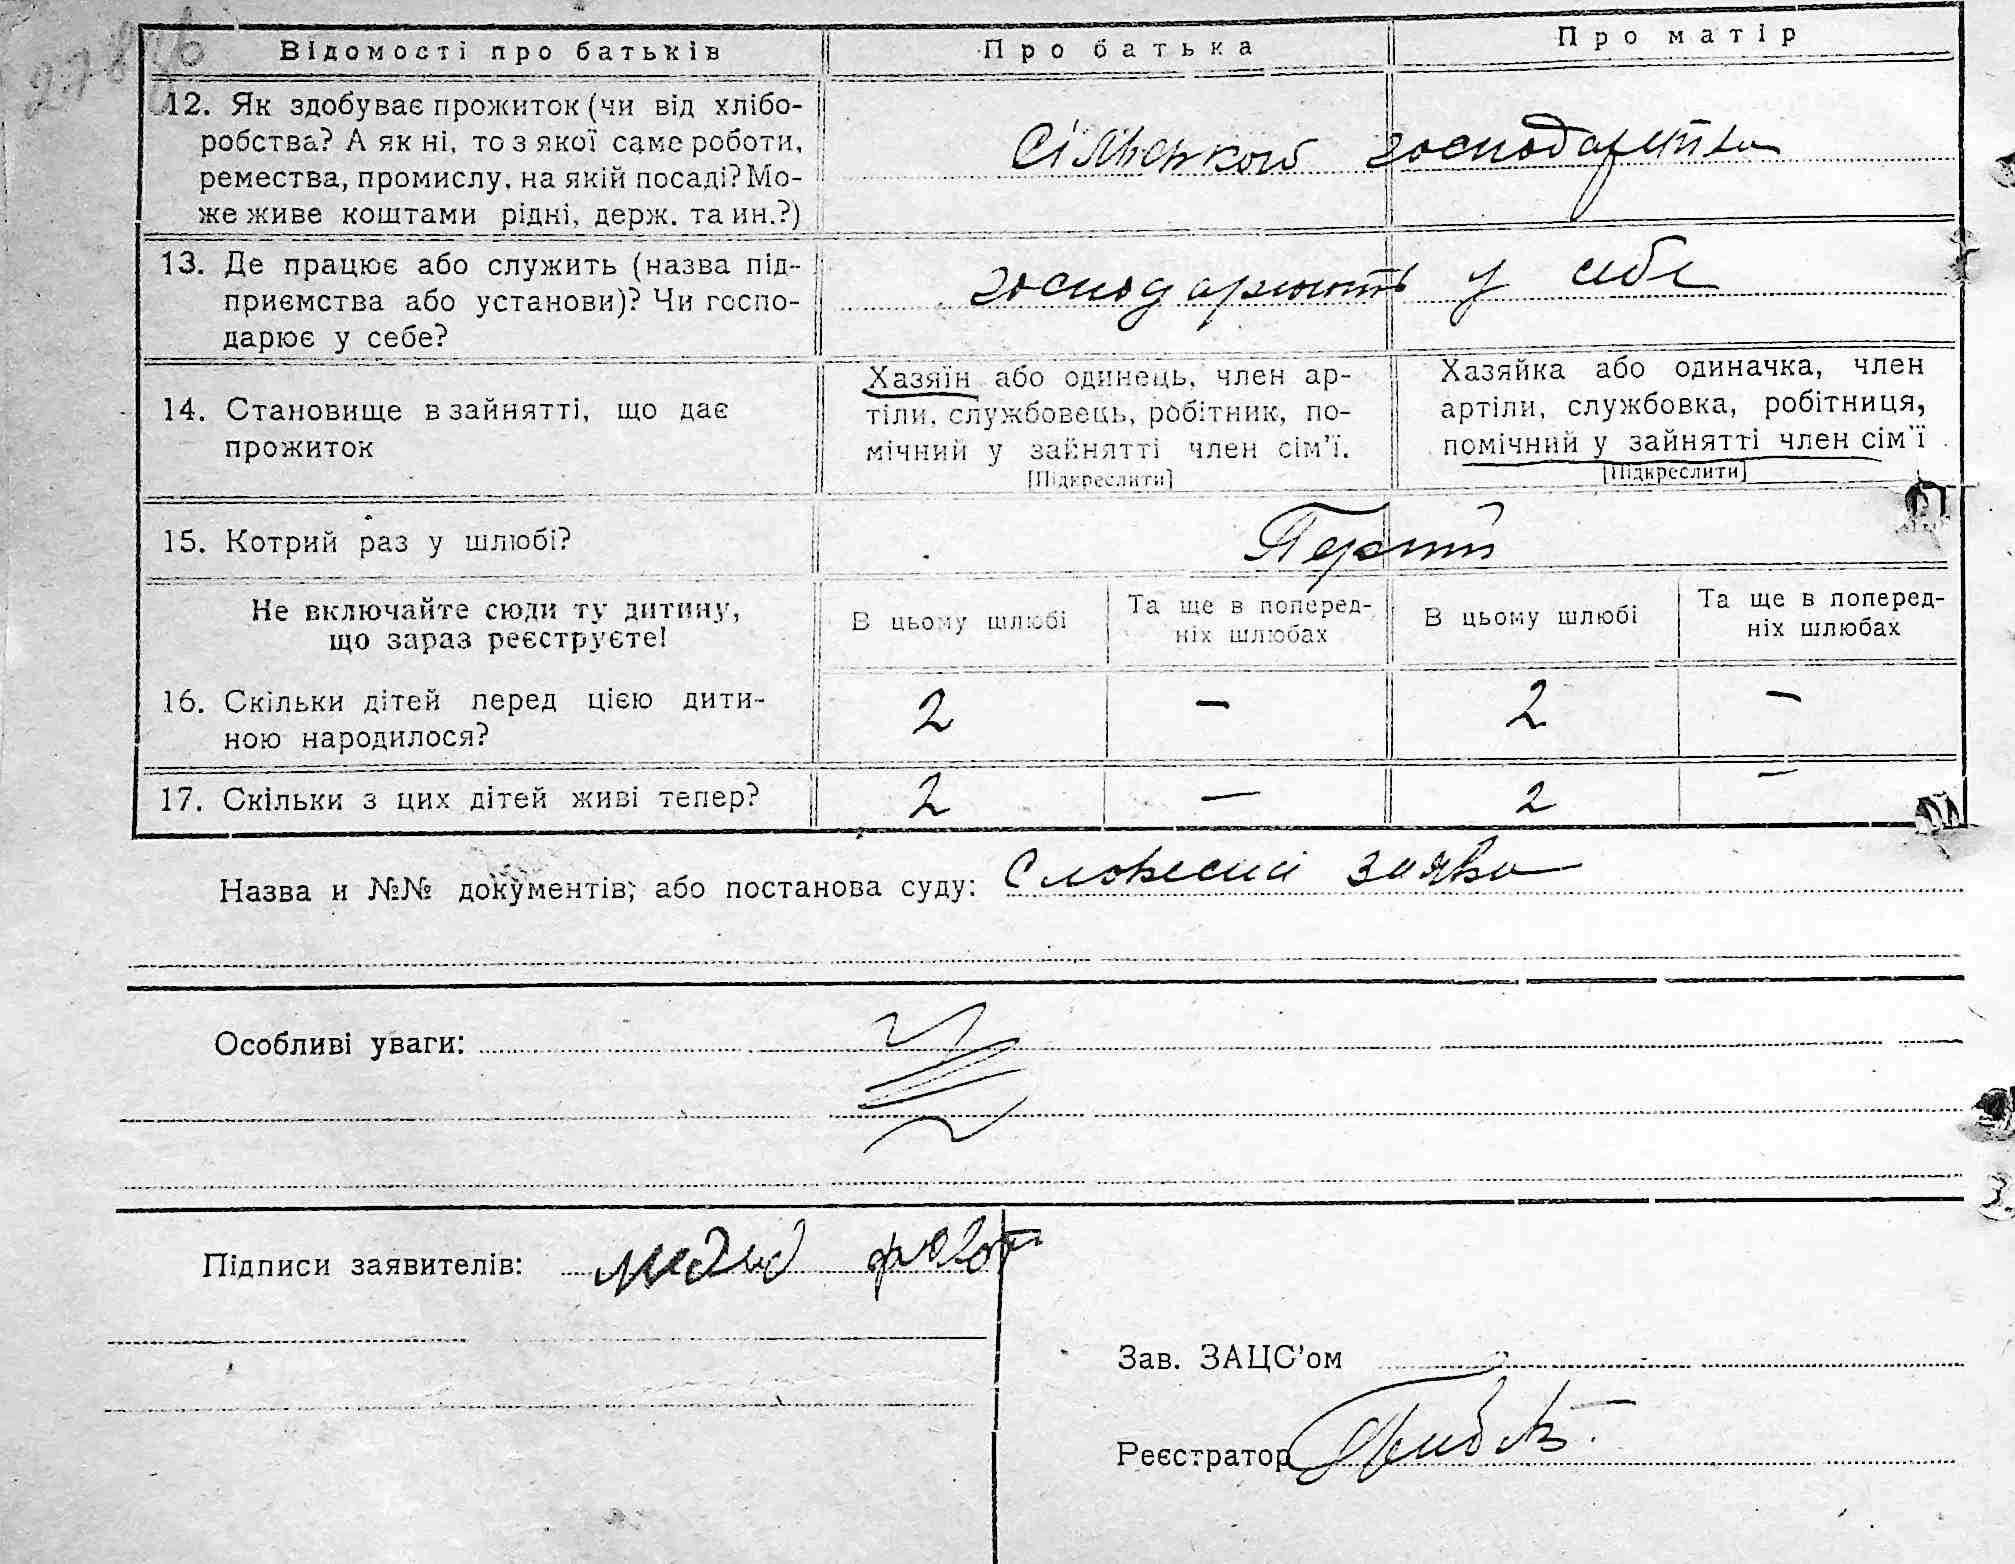 Відомості про батьків
Про батька
Про матір
12. Як здобуває прожиток (чи від хлібо-
робства? А як ні, то з якої саме роботи,
ремества, промислу, на якій посаді? Мо-
же живе коштами рідні, держ. та ин.?)
Сільського господарства
13. Де працює або служить (назва під-
приємства або установи)? Чи госпо-
дарює у себе?
господарюють у себе
14. Становище в зайнятті, що дає
прожиток
Хазяїн або одинець, член ар-
тіли, службовець, робітник, по-
мічний у зайнятті член сім'ї.
[Підкреслити]
Хазяйка або одиначка, член
артіли, службовка, робітниця,
помічний у зайнятті член сім'ї
[Підкреслити]
15. Котрий раз у шлюбі?
Перший
Не включайте сюди ту дитину,
що зараз реєструєте!
В цьому шлюбі
Та ще в поперед-
ніх шлюбах
В цьому шлюбі
Та ще в поперед-
ніх шлюбах
16. Скільки дітей перед цією дити-
ною народилося?
2 – 2 –
17. Скільки з цих дітей живі тепер?
2 – 2 –
Назва и №№ документів; або постанова суду: Словесна заява
Особливі уваги:
Підписи заявителів:
Зав. ЗАЦС'ом
Реєстратор